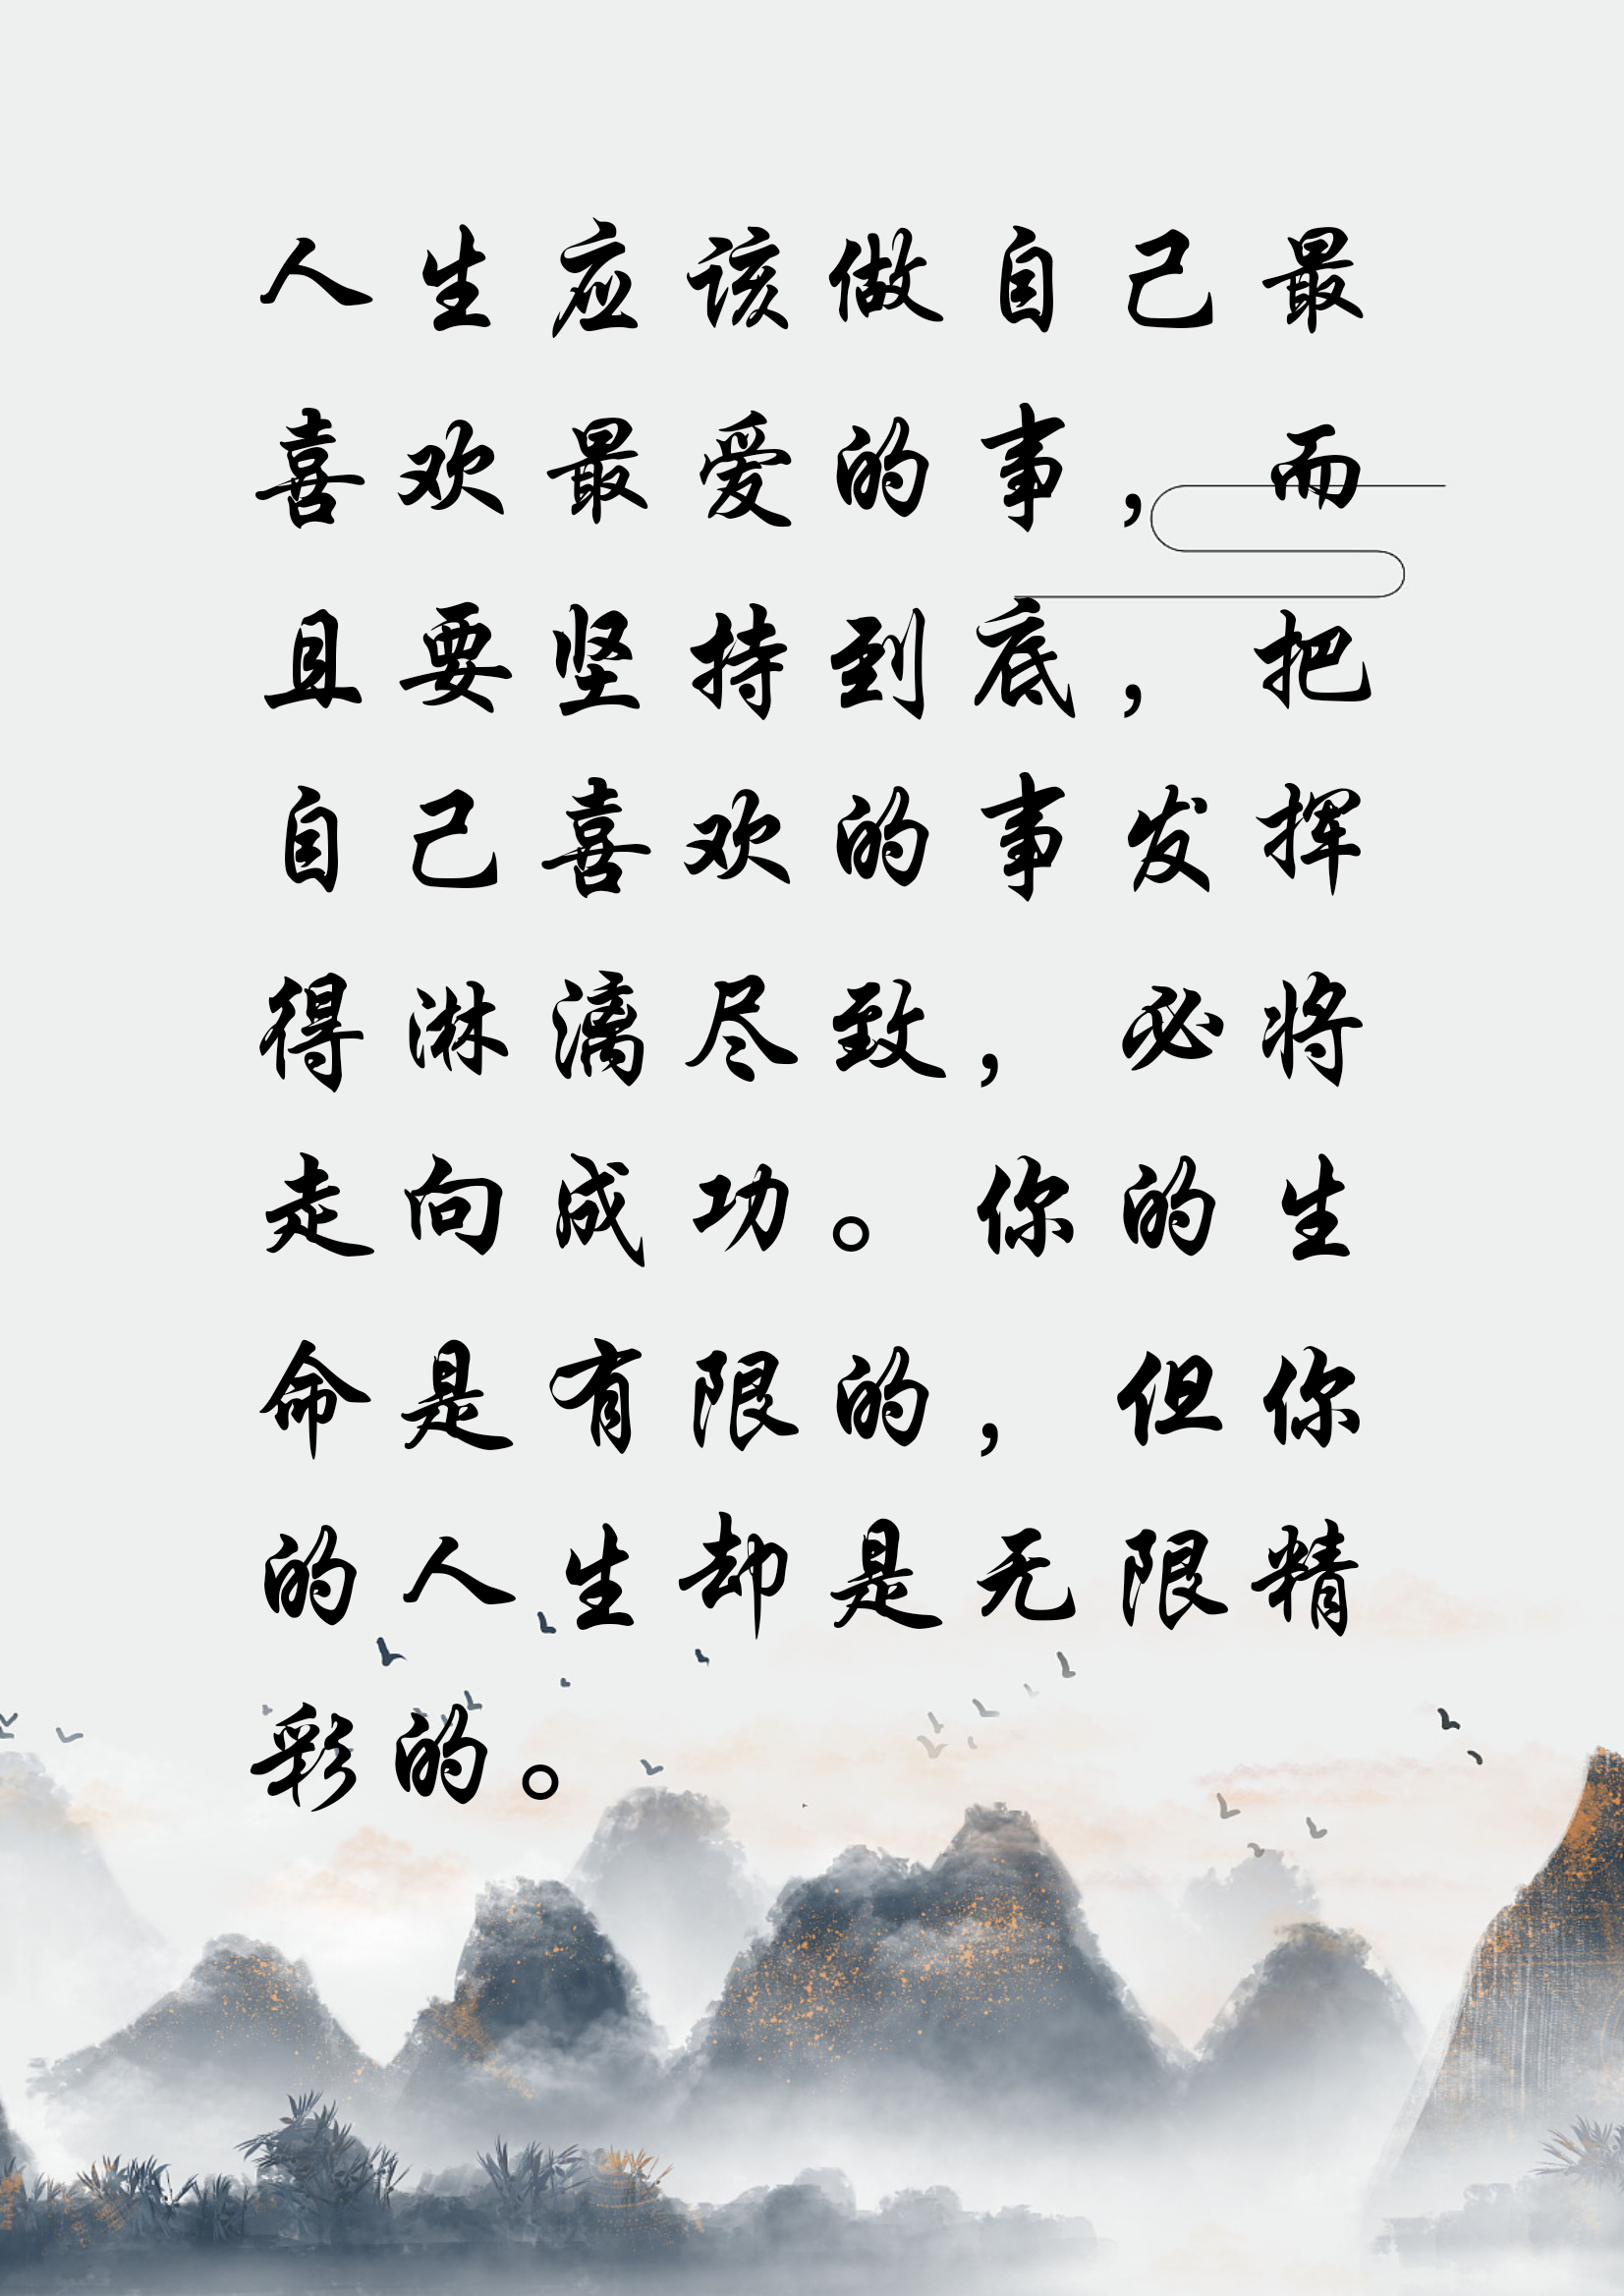 人生应该做自己最
喜欢最爱的事，而
且要坚持到底，把
自己喜欢的事发挥
得淋漓尽致，必将
走向成功。你的生
命是有限的，但你
的人生却是无限精
彩的。